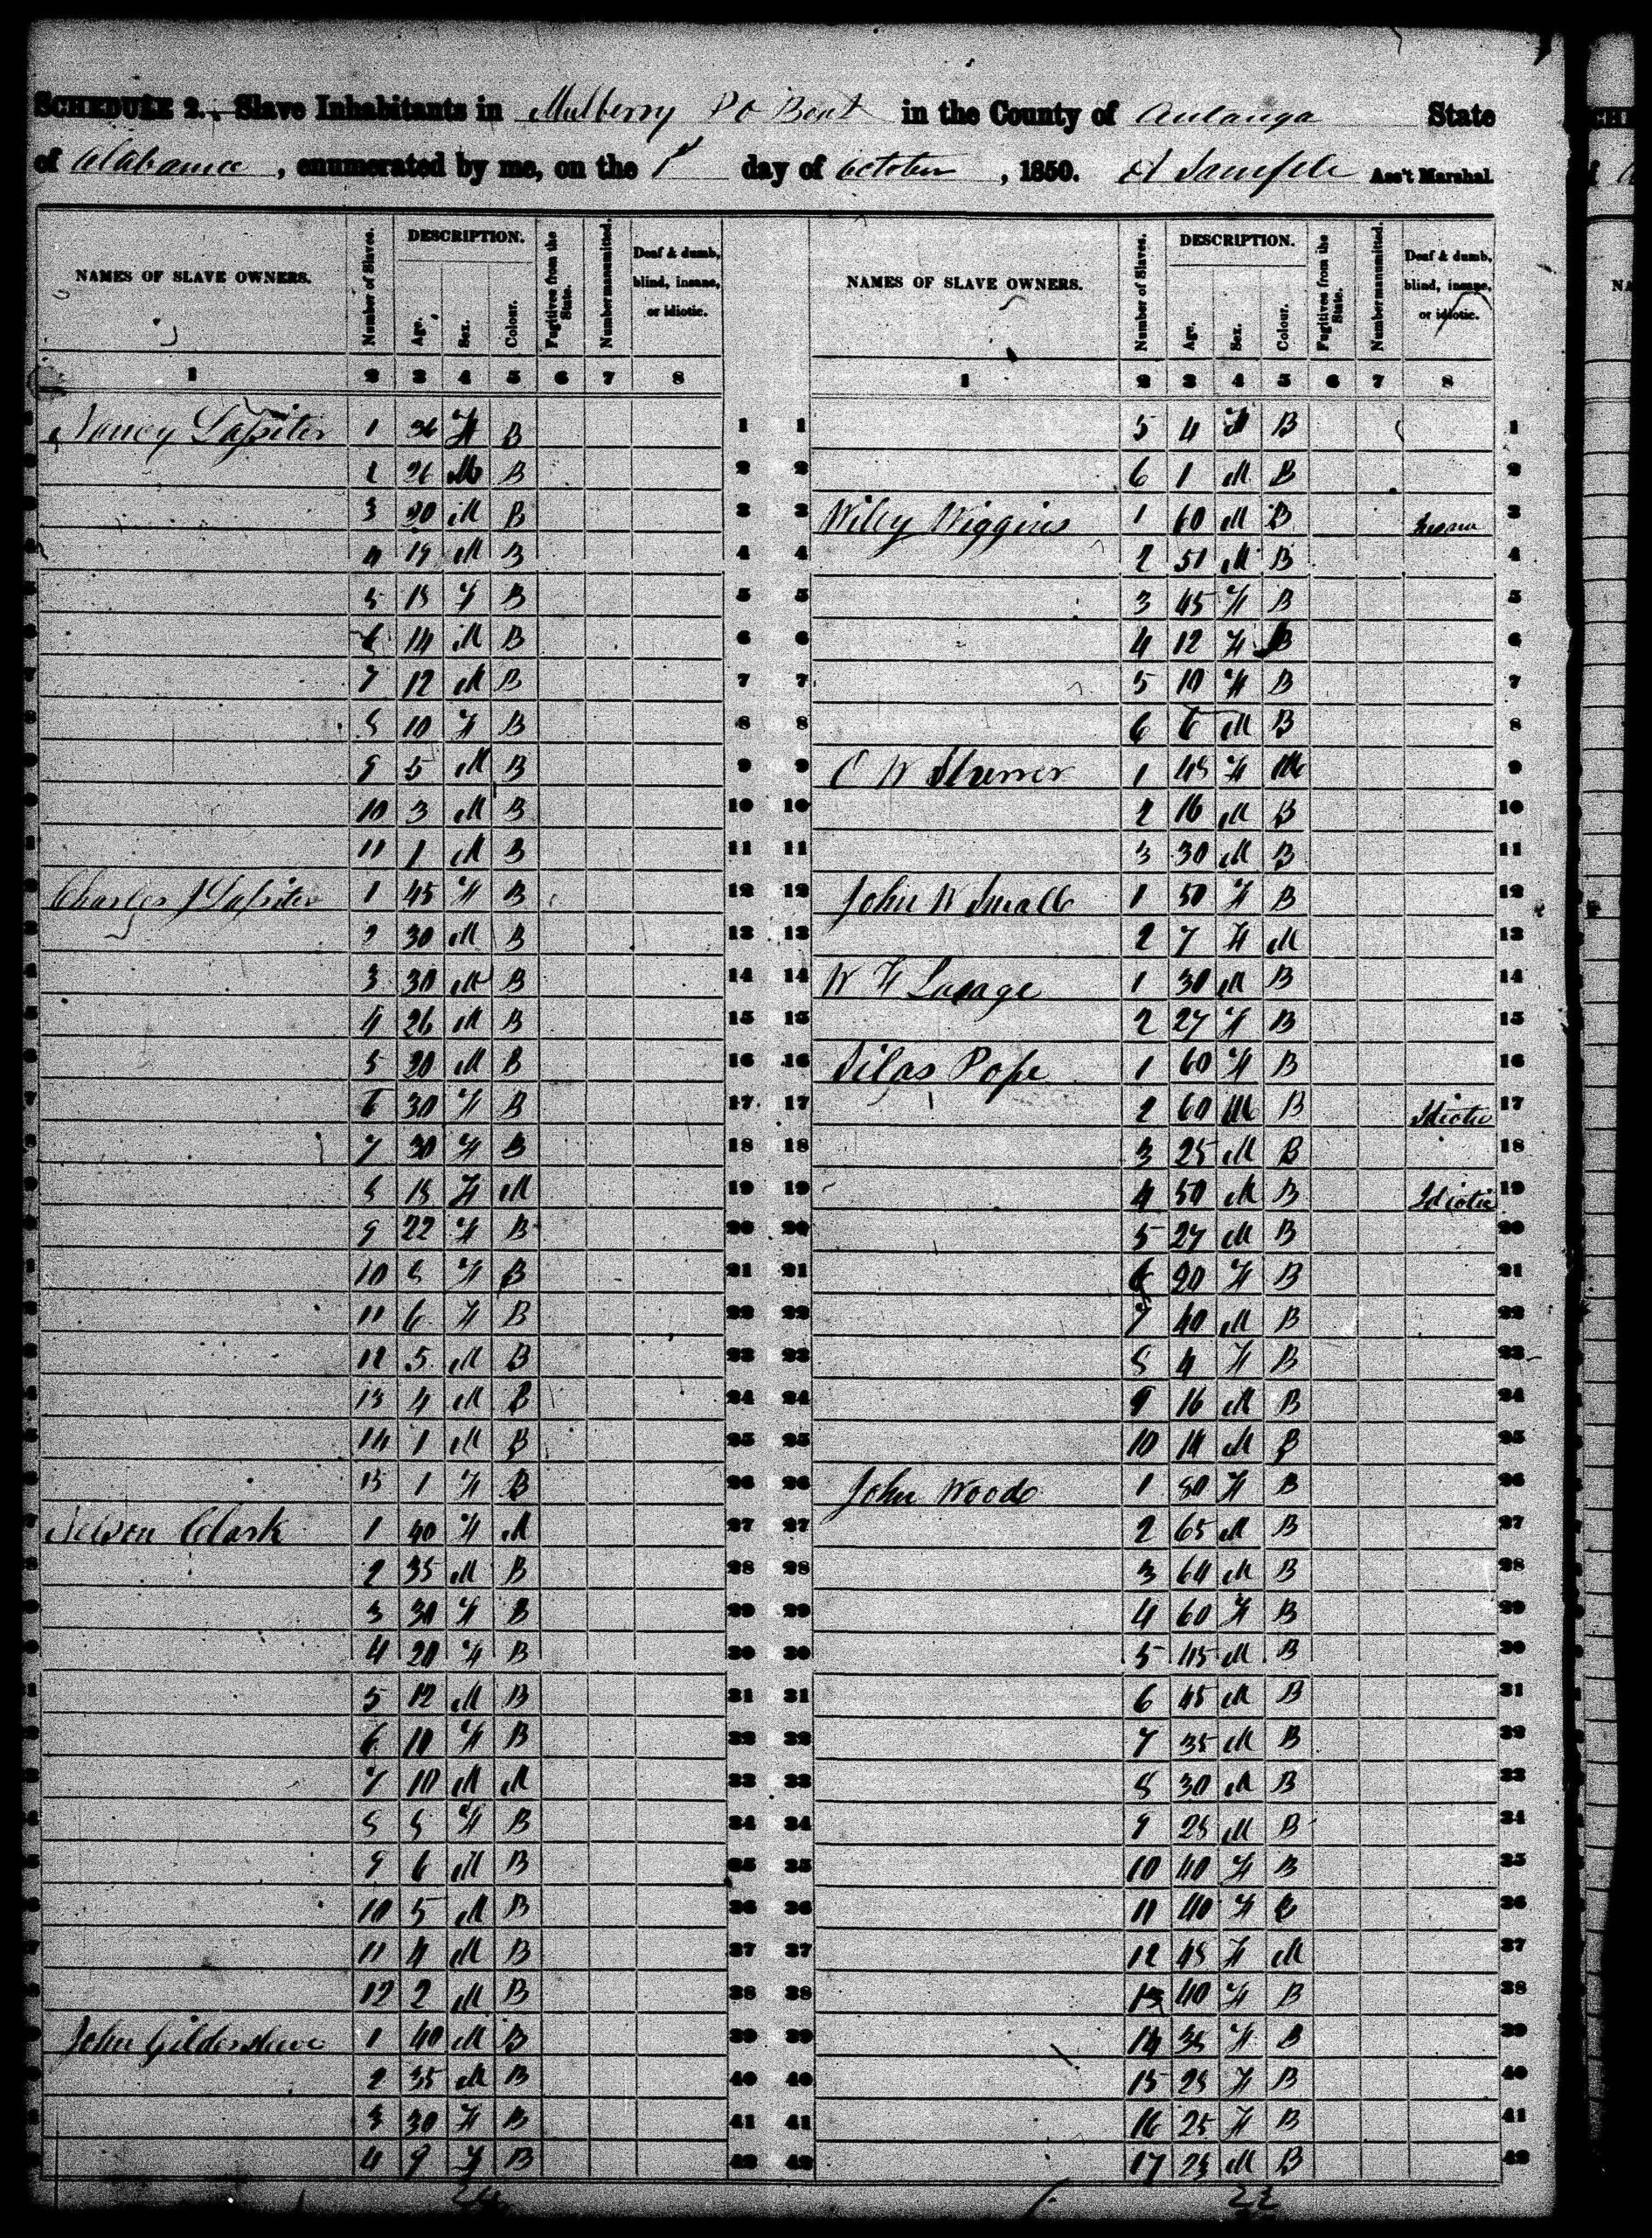 SCHEDULE 2. Slave Inhabitants in Mulberry PO Beat in the County of Autauga State
of Alabama, enumerated by me, on the 1st day of October, 1850. Ass't Marshal
NAMES OF SLAVE OWNERS. Number of Slaves. DESCRIPTION. Age. Sex. Colour. Fugitives from the State. Number manumitted. Deaf & dumb, blind, insane, or idiotic. NAMES OF SLAVE OWNERS. Number of Slaves. DESCRIPTION. Age. Sex. Colour. Fugitives from the State. Number manumitted. Deaf & dumb, blind, insane, or idiotic.
1 2 3 4 5 6 7 8 1 2 3 4 5 6 7 8
Nancy Lassiter 1 36 F B 1
2 26 M B 2
3 20 M B 3
4 19 M B 4
5 18 F B 5
6 14 M B 6
7 12 M B 7
8 10 F B 8
9 5 M B 9
10 3 M B 10
11 1 M B 11
Charles J Lassiter 1 45 F B 12
2 30 M B 13
3 30 M B 14
4 26 M B 15
5 20 M B 16
6 30 F B 17
7 30 F B 18
8 18 F M 19
9 22 F B 20
10 8 F B 21
11 6 F B 22
12 5 M B 23
13 4 M B 24
14 1 M B 25
15 1 F B 26
Nelson Clark 1 40 F M 27
2 35 M B 28
3 30 F B 29
4 20 F B 30
5 12 M B 31
6 10 F B 32
7 10 M M 33
8 8 F B 34
9 6 M B 35
10 5 M B 36
11 4 M B 37
12 2 M B 38
John Gildersleeve 1 40 M B 39
2 35 M B 40
3 30 F B 41
4 9 F B 42
1 5 4 F B 1
2 6 1 M B 2
3 Wiley Wiggins 1 60 M B Insane 3
4 2 51 M B 4
5 3 45 F B 5
6 4 12 F B 6
7 5 10 F B 7
8 6 6 M B 8
9 C W 1 48 F M 9
10 2 16 M B 10
11 3 30 M B 11
12 John W Small 1 50 F B 12
13 2 7 F M 13
14 W F 1 30 M B 14
15 2 27 F B 15
16 Silas Pope 1 60 F B 16
17 2 60 M B Idiotic 17
18 3 25 M B 18
19 4 50 M B Idiotic 19
20 5 27 M B 20
21 6 20 F B 21
22 7 40 M B 22
23 8 4 F B 23
24 9 16 M B 24
25 10 14 M B 25
26 John Woods 1 80 F B 26
27 2 65 M B 27
28 3 64 M B 28
29 4 60 F B 29
30 5 45 M B 30
31 6 45 M B 31
32 7 35 M B 32
33 8 30 M B 33
34 9 28 M B 34
35 10 40 F B 35
36 11 40 F B 36
37 12 48 F M 37
38 13 40 F B 38
39 14 38 F B 39
40 15 28 F B 40
41 16 25 F B 41
42 17 28 M B 42